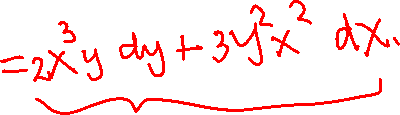 =2x³y dy+3y²x² dx.